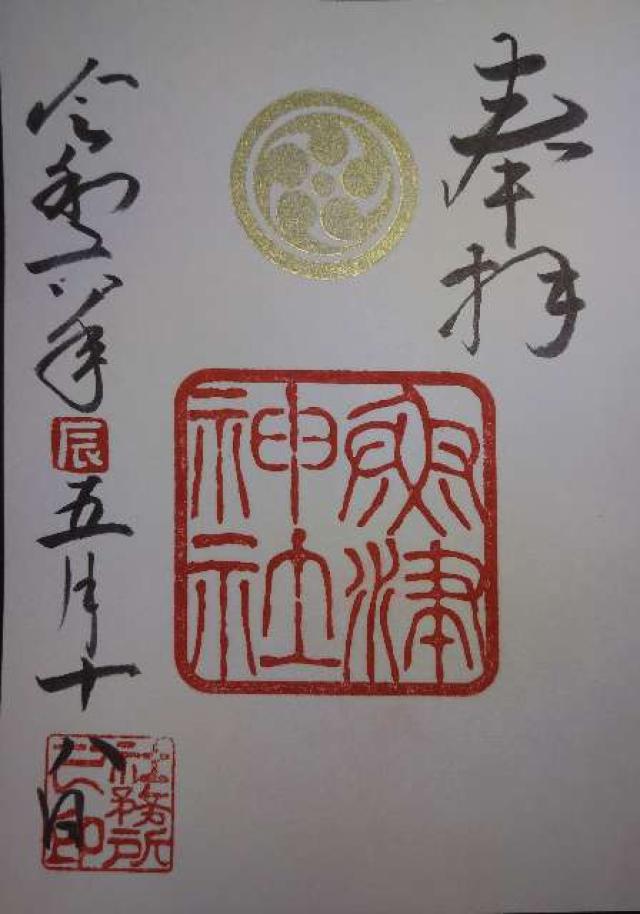 奉拝
津
神社
令和六年
辰
五月十八日
社務所
之印